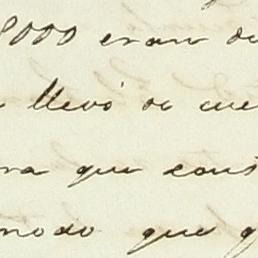 8000 eran de
llevó de cue
ra que cons
modo que g